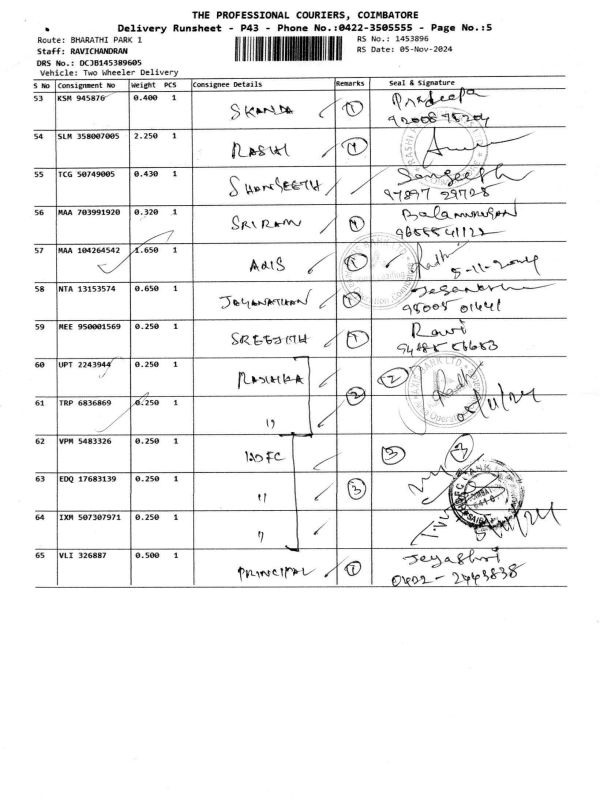 THE PROFESSIONAL COURIERS, COIMBATORE
Delivery Runsheet - P43 - Phone No.:0422-3505555 - Page No.:5
Route: BHARATHI PARK 1 RS No.: 1453896
Staff: RAVICHANDRAN RS Date: 05-Nov-2024
DRS No: DCJB145389605
Vehicle: Two Wheeler Delivery
S No Consignment No Weight PCS Consignee Details Remarks Seal & Signature
53 KSM 945876 0.400 1 SKANDA 1 Pradeepa
54 SLM 358007005 2.250 1 RASHI 1
55 TCG 50749005 0.430 1 Sangeeth
97897 29728
56 MAA 703991920 0.320 1 SRIRAM 1 Balamurugan
9655541122
57 MAA 104264542 1.650 1 AXIS 1 Radhi 5-11-2024
58 NTA 13153574 0.650 1 JEYANATHAN 1
98005 01441
59 MEE 950001569 0.250 1 SREEJITH 1 Ravi
60 UPT 2243944 0.250 1 RADHIKA 2 2 Radhi
61 TRP 6836869 0.250 1 " 05/11/24
62 VPM 5483326 0.250 1 HDFC 3 3
63 EDQ 17683139 0.250 1 " 3
64 IXM 507307971 0.250 1 " 5/11/24
65 VLI 326887 0.500 1 PRINCIPAL 1 Jeyashri
0422-2443838